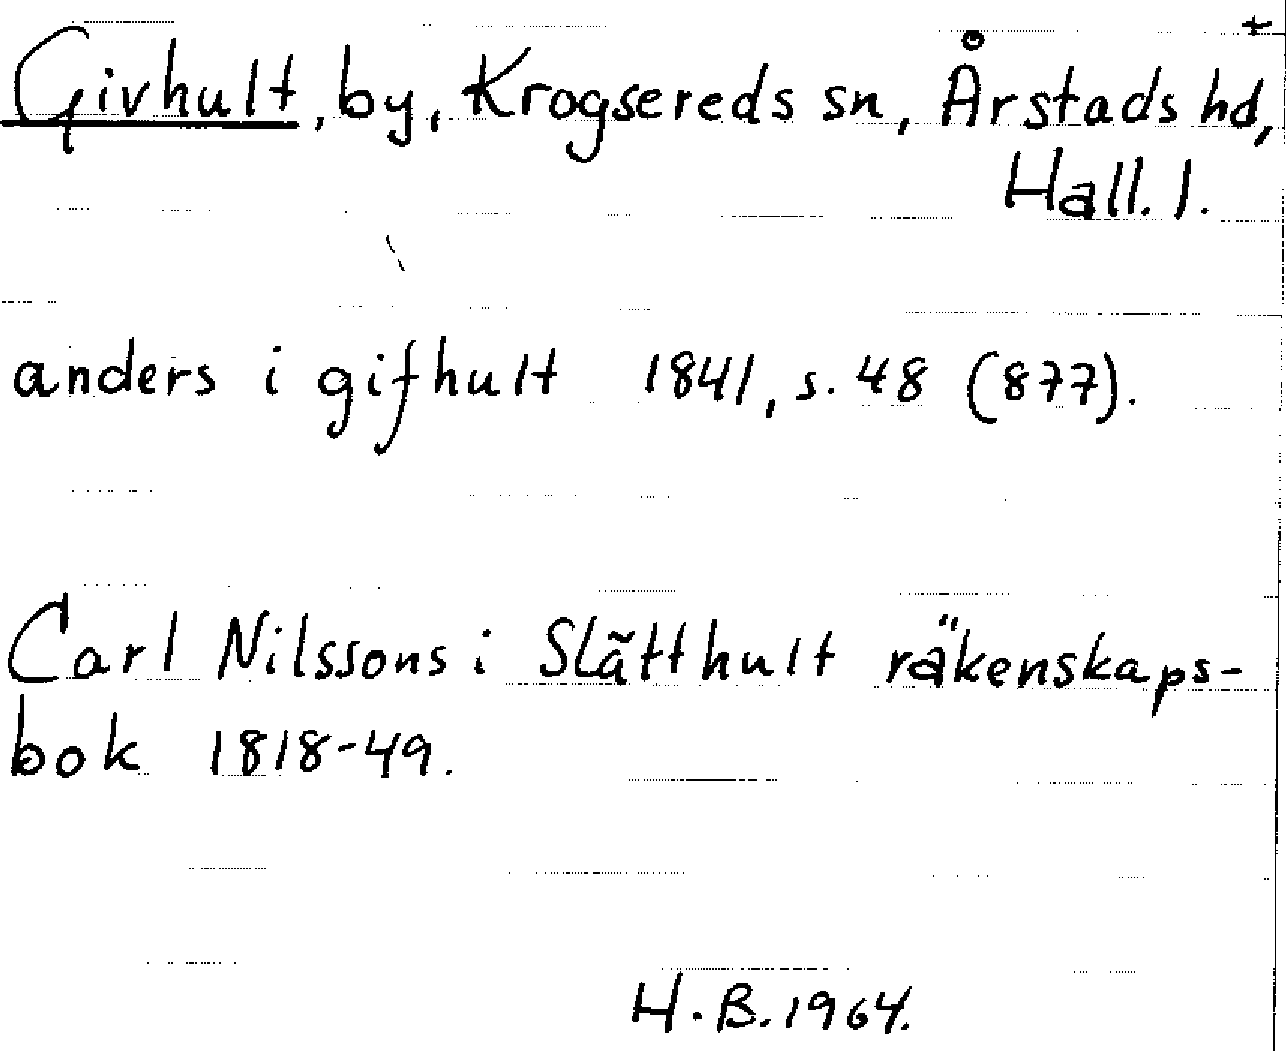 Givhult, by, Krogsereds sn, Årstads hd,
Hall. l.
anders i gifhult 1841, s. 48 (877).
Carl Nilssons i Slätthult räkenskaps-
bok 1818-49.
H.B. 1964.